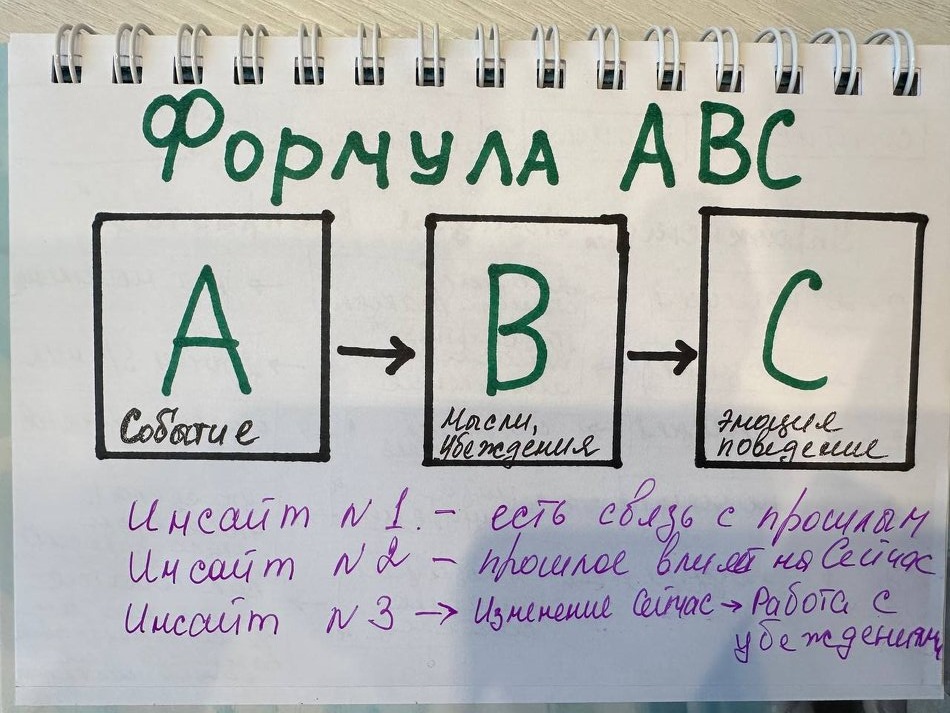 Формула ABC
A
B
C
Событие
Мысли,
убеждения
эмоция
поведение
Инсайт N1. - есть связь с прошлым
Инсайт N2 - прошлое влияет на Сейчас
Инсайт N3 → Изменение Сейчас → Работа с
убеждениями